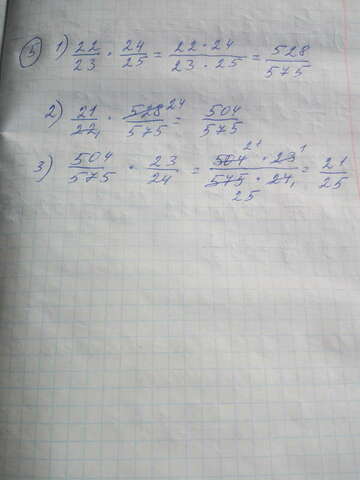 5 1) 22/23 · 24/25 = 22·24/23·25 = 528/575
2) 21/22 1 · 528 24/575 = 504/575
3) 504/575 · 23/24 = 504 21 · 23 1/575 25 · 24 1 = 21/25